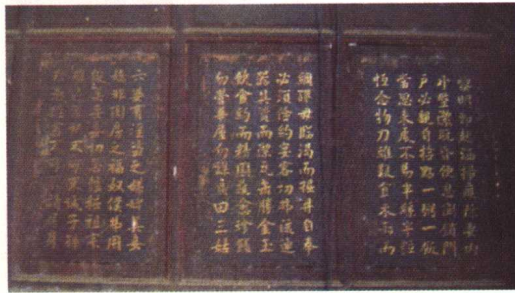 黎明即起灑掃庭除要內
外整潔既昏便息關鎖門
戶必親自檢點一粥一飯
當思來處不易半絲半縷
恒念物力維艱宜未雨而
綢繆毋臨渴而掘井自奉
必須儉約宴客切弗流連
器具質而潔瓦缶勝金玉
飲食約而精園蔬愈珍饈
勿營華屋勿謀良田三姑
六婆實淫盜之媒婢美妾
嬌非閨房之福奴僕弗用
俊美妻妾切忌艷粧祖宗
雖遠祭祀不可不誠子孫